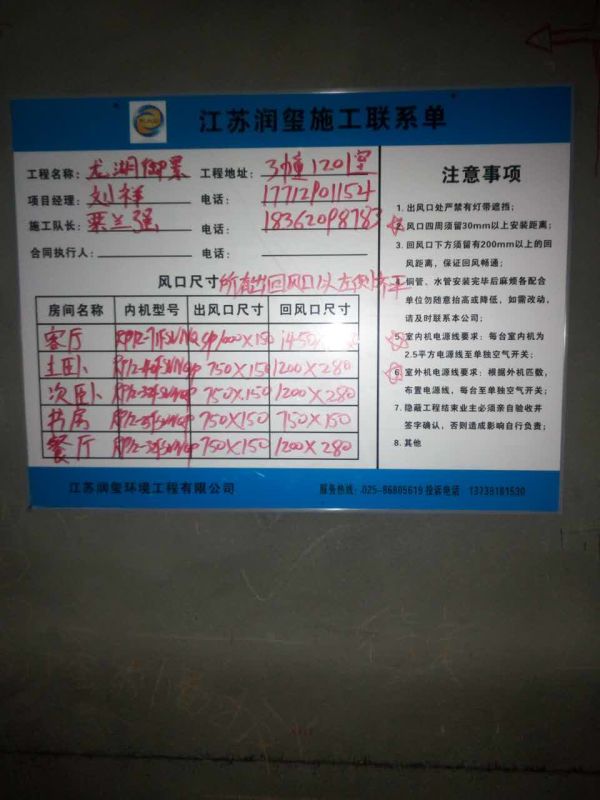 江苏润玺施工联系单
工程名称: 龙湖御景 工程地址: 3幢1201室
项目经理: 刘祥 电话: 17712901154
施工队长: 栗兰强 电话: 18362098783
合同执行人: 电话:
风口尺寸 所有出回风口以左侧齐平
房间名称 内机型号 出风口尺寸 回风口尺寸
客厅
主卧 750×150 1200×280
次卧 750×150 1200×280
书房 750×150 750×150
餐厅 750×150 1200×280
注意事项
1. 出风口处严禁有灯带遮挡;
2. 风口四周须留30mm以上安装距离;
3. 回风口下方须留有200mm以上的回
风距离,保证回风畅通;
4. 铜管、水管安装完毕后麻烦各配合
单位勿随意抬高或降低,如需改动,
请及时联系本公司;
5. 室内机电源线要求: 每台室内机为
2.5平方电源线至单独空气开关;
6. 室外机电源线要求: 根据外机匹数,
布置电源线,每台至单独空气开关;
7. 隐蔽工程结束业主必须亲自验收并
签字确认,否则造成影响自行负责;
8. 其他
江苏润玺环境工程有限公司 服务热线: 025-86805619 投诉电话 13739181530